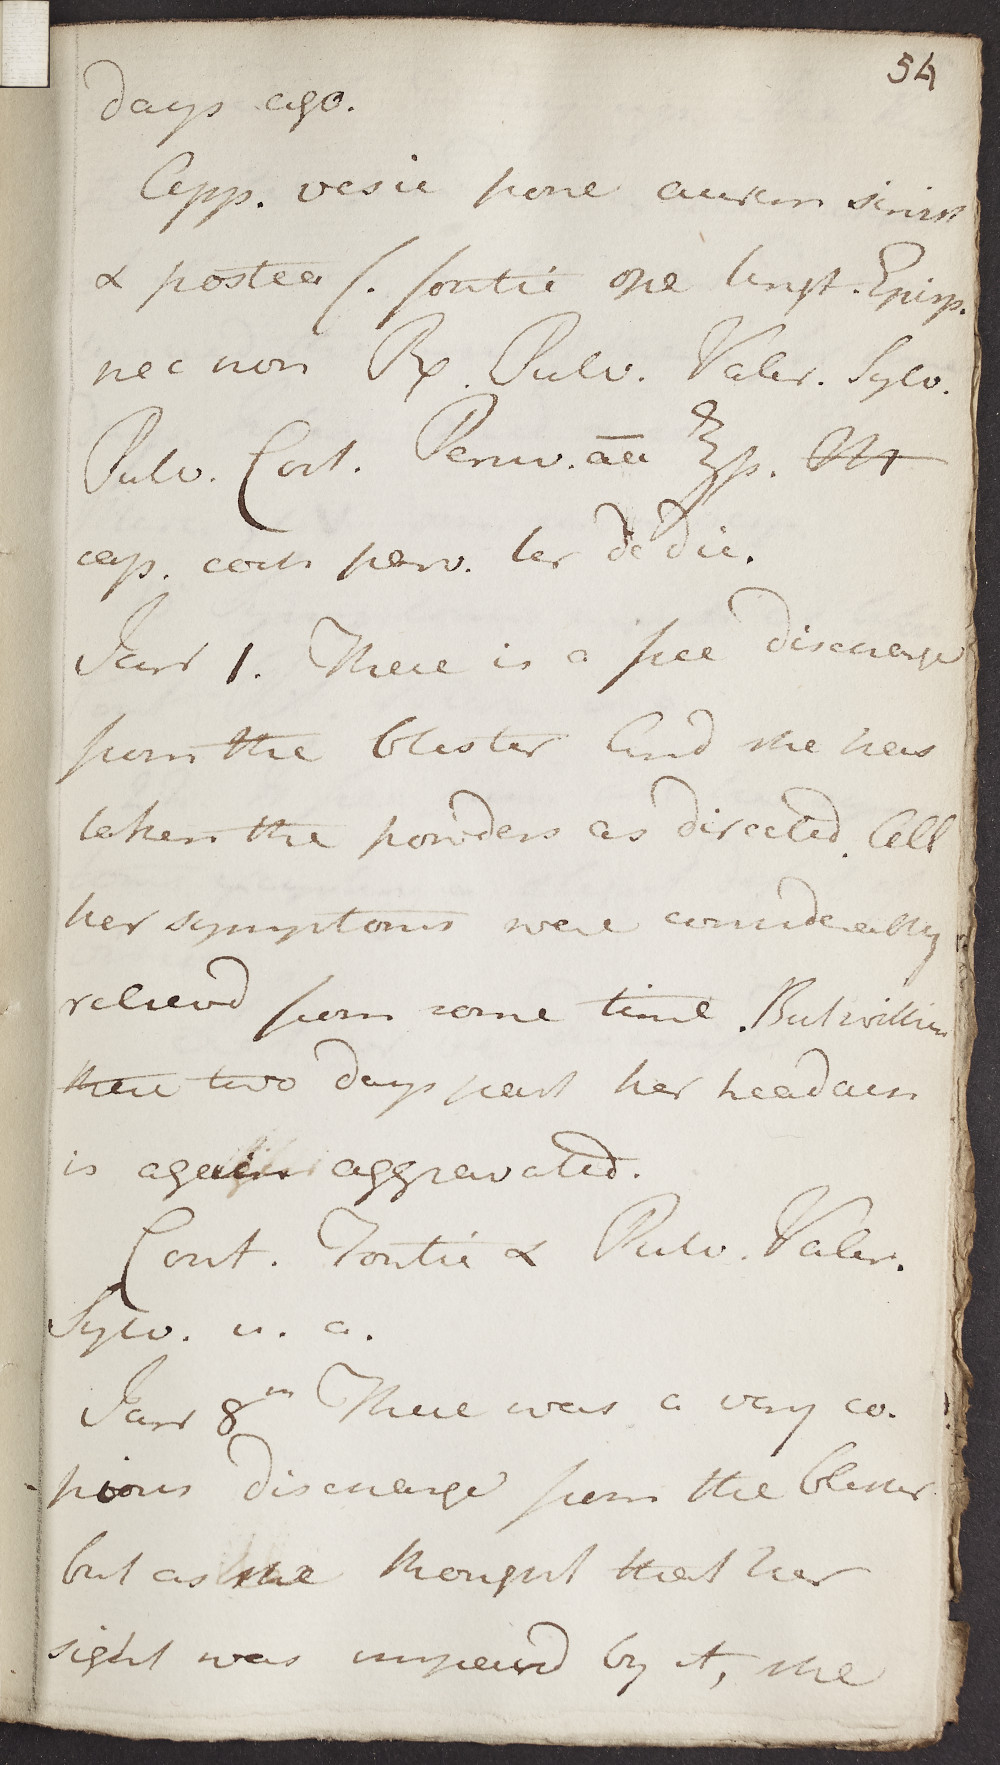 54
days ago.
App. vesic pone aurem sinist
& postea f. fontic ope Ungt. Episp.
nec non Rx. Pulv. Valer. Sylv.
Pulv. Cort. Peruv. aa ʒp. M
cap. coch parv. ter de die.
Janr 1. There is a free discharge
from the blister And she has
taken the powders as directed. All
her symptoms were considerably
relievd from some time. But within
these two days past her headach
is again aggravated.
Cont. Fontic & Pulv. Valer.
Sylv. u. a.
Janr 8th There was a very co-
pious discharge from the blister
but as she thought that her
sight was impaird by it, she